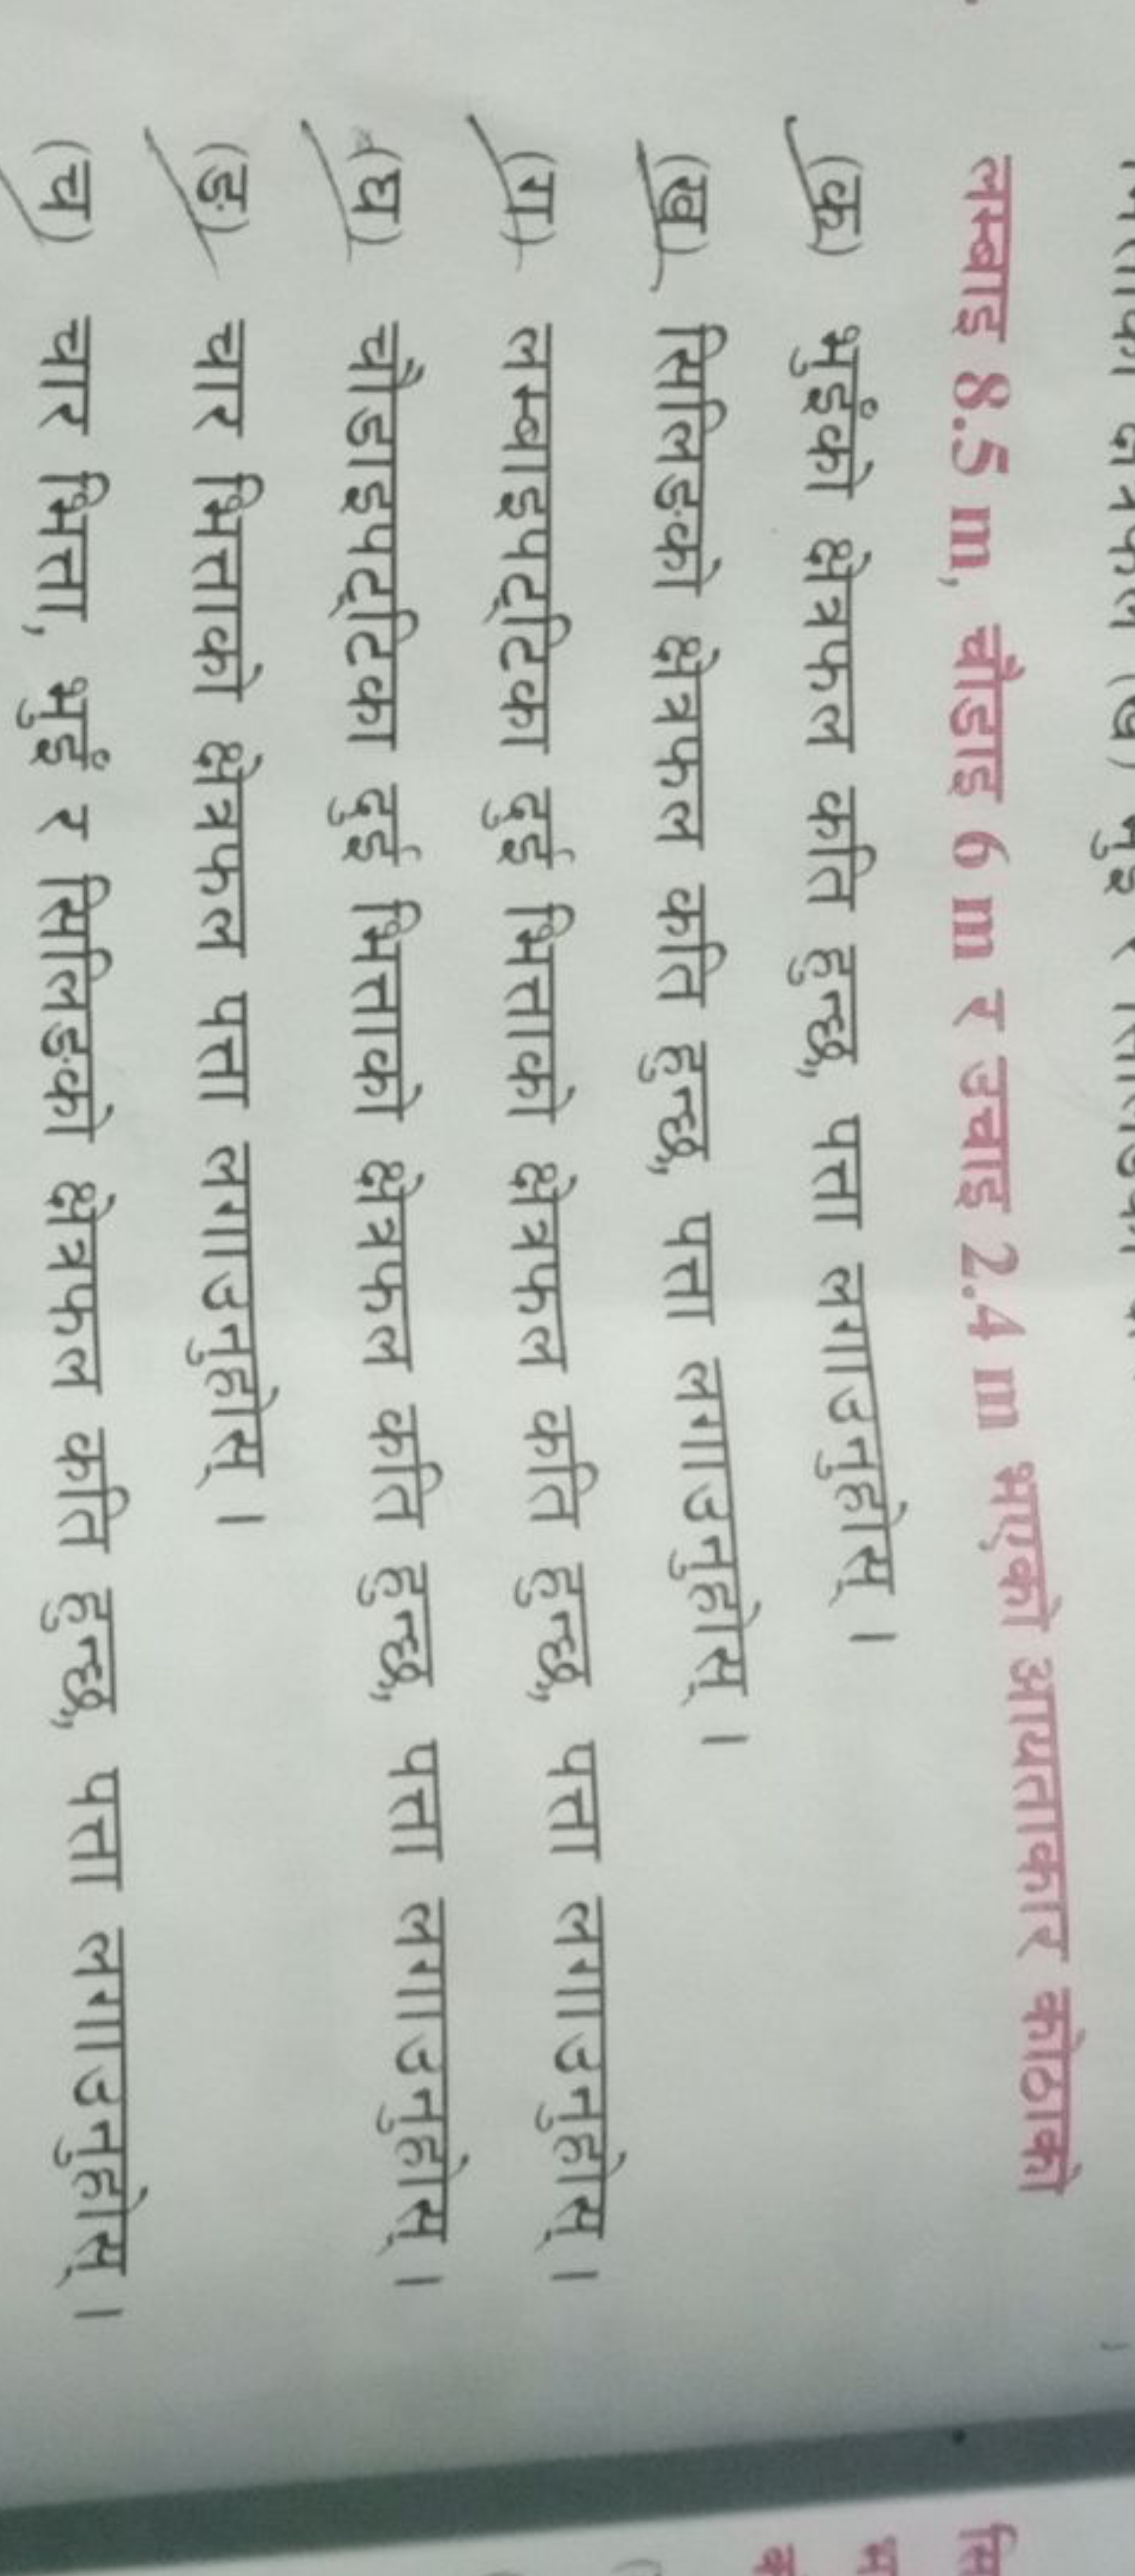 लम्बाइ 8.5 m, चौडाइ 6 m र उचाइ 2.4 m भएको आयताकार कोठाको
(क) भुइँको क्षेत्रफल कति हुन्छ, पत्ता लगाउनुहोस् ।
(ख) सिलिङको क्षेत्रफल कति हुन्छ, पत्ता लगाउनुहोस् ।
(ग) लम्बाइपट्टिका दुई भित्ताको क्षेत्रफल कति हुन्छ, पत्ता लगाउनुहोस् ।
(घ) चौडाइपट्टिका दुई भित्ताको क्षेत्रफल कति हुन्छ, पत्ता लगाउनुहोस् ।
(ङ) चार भित्ताको क्षेत्रफल पत्ता लगाउनुहोस् ।
(च) चार भित्ता, भुइँ र सिलिङको क्षेत्रफल कति हुन्छ, पत्ता लगाउनुहोस् ।